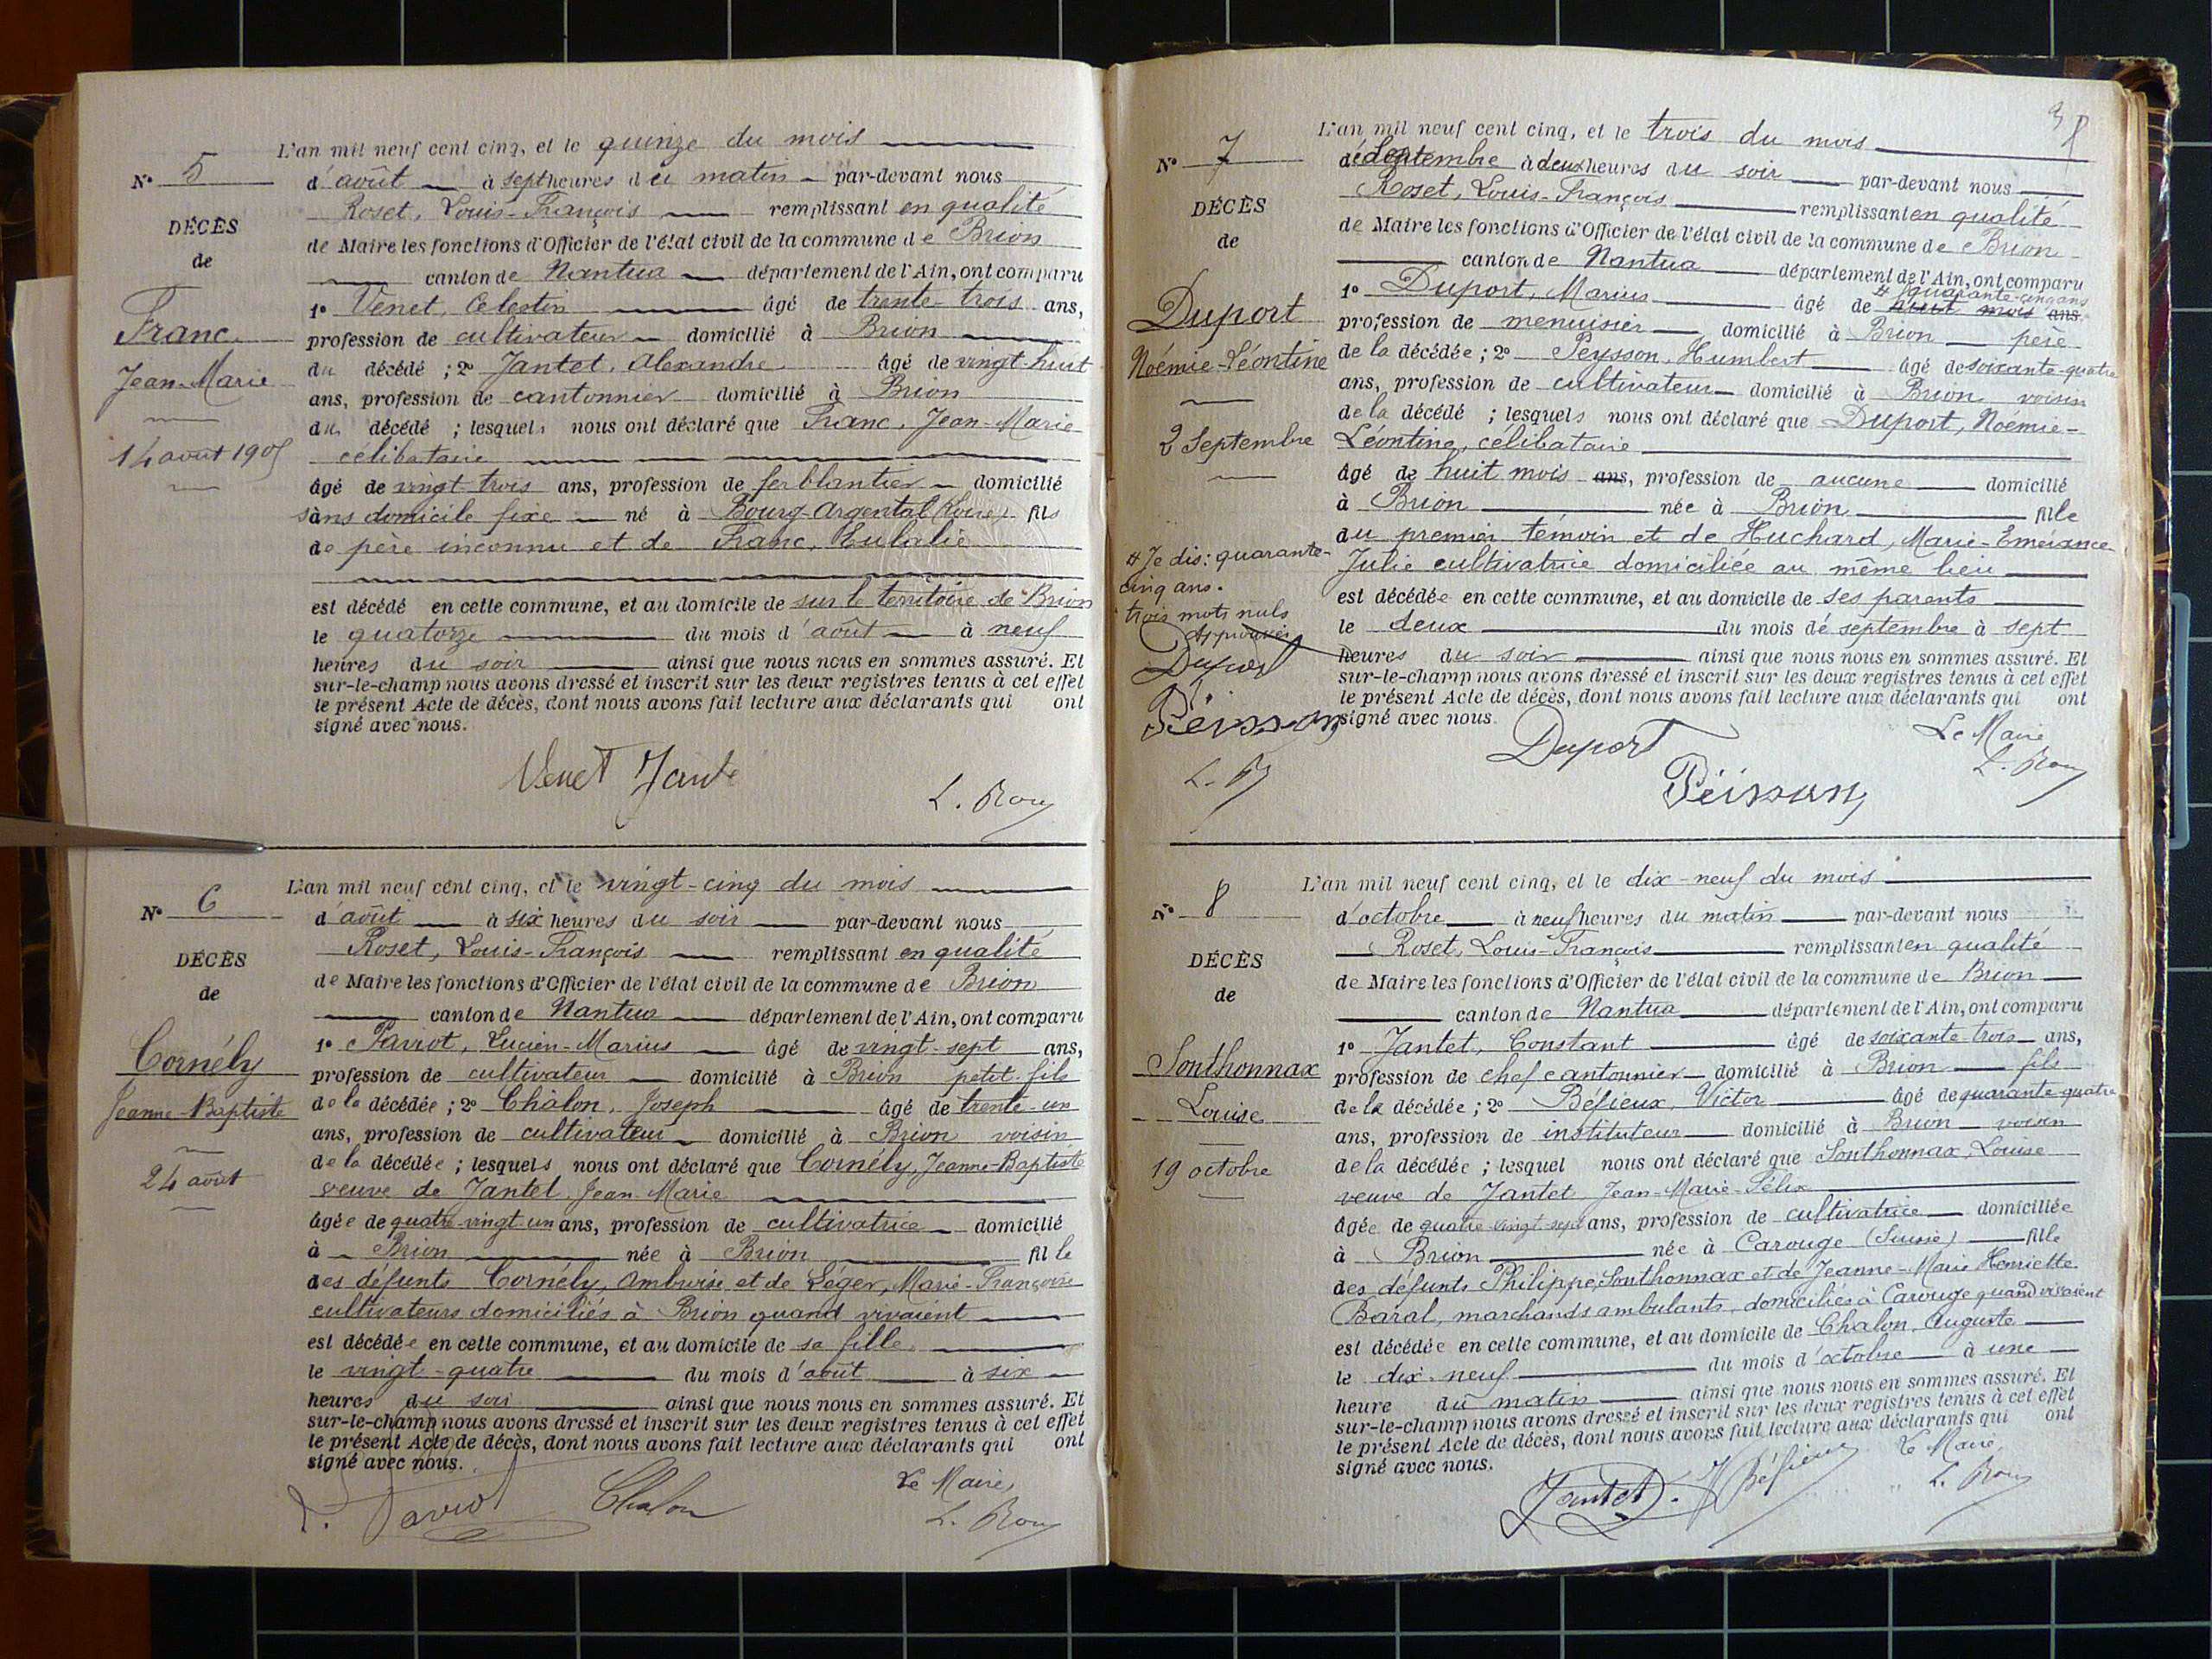 L'an mil neuf cent cinq, et le quinze du mois
N° 5
d'août à sept heures du matin par-devant nous
DÉCÈS
Roset, Louis-François remplissant en qualité
de
de Maire les fonctions d'Officier de l'état civil de la commune de Brion
canton de Nantua département de l'Ain, ont comparu
Franc
1° Venet, Célestin âgé de trente-trois ans,
profession de cultivateur domicilié à Brion
Jean-Marie
du décédé ; 2° Jantet, Alexandre âgé de vingt-huit
ans, profession de cantonnier domicilié à Brion
du décédé ; lesquels nous ont déclaré que Franc, Jean-Marie
14 août 1905
célibataire
âgé de vingt trois ans, profession de ferblantier domicilié
sans domicile fixe né à Bourg-Argental (Loire) fils
de père inconnu et de Franc, Eulalie
est décédé en cette commune, et au domicile de sur le territoire de Brion
le quatorze du mois d'août à neuf
heures du soir ainsi que nous nous en sommes assuré. Et
sur-le-champ nous avons dressé et inscrit sur les deux registres tenus à cet effet
le présent Acte de décès, dont nous avons fait lecture aux déclarants qui ont
signé avec nous.
Venet
L'an mil neuf cent cinq, et le vingt-cinq du mois
N° 6
d'août à six heures du soir par-devant nous
DÉCÈS
Roset, Louis-François remplissant en qualité
de
de Maire les fonctions d'Officier de l'état civil de la commune de Brion
canton de Nantua département de l'Ain, ont comparu
Cornély
1° Paviot, Lucien-Marius âgé de vingt-sept ans,
profession de cultivateur domicilié à Brion petit-fils
Jeanne-Baptiste
de la décédée ; 2° Chalon, Joseph âgé de trente-un
ans, profession de cultivateur domicilié à Brion voisin
24 août
de la décédée ; lesquels nous ont déclaré que Cornély, Jeanne-Baptiste
veuve de Jantet Jean-Marie
âgée de quatre-vingt-un ans, profession de cultivatrice domicilié
à Brion née à Brion fille
des défunts Cornély, Ambroise et de Léger, Marie-Françoise
cultivateurs domiciliés à Brion quand vivaient
est décédée en cette commune, et au domicile de sa fille
le vingt-quatre du mois d'août à six
heures du soir ainsi que nous nous en sommes assuré. Et
sur-le-champ nous avons dressé et inscrit sur les deux registres tenus à cet effet
le présent Acte de décès, dont nous avons fait lecture aux déclarants qui ont
signé avec nous.
Chalon
Le Maire,
L'an mil neuf cent cinq, et le trois du mois
N° 7
de septembre à deux heures du soir par-devant nous
DÉCÈS
Roset, Louis-François remplissant en qualité
de
de Maire les fonctions d'Officier de l'état civil de la commune de Brion
canton de Nantua département de l'Ain, ont comparu
quarante-cinq ans
Duport
1° Duport, Marius âgé de huit mois ans
profession de menuisier domicilié à Brion père
Noémie-Léontine
de la décédée ; 2° Peysson, Humbert âgé de soixante-quatre
ans, profession de cultivateur domicilié à Brion voisin
de la décédé ; lesquels nous ont déclaré que Duport, Noémie-
2 Septembre
Léontine, célibataire
âgé de huit mois ans, profession de aucune domicilié
à Brion née à Brion fille
du premier témoin et de Huchard, Marie-Emérance
Je dis : quarante-
cinq ans.
trois mots nuls
Approuvés
Duport
Péisson
Julie cultivatrice domiciliée au même lieu
est décédée en cette commune, et au domicile de ses parents
le deux du mois de septembre à sept
heures du soir ainsi que nous nous en sommes assuré. Et
sur-le-champ nous avons dressé et inscrit sur les deux registres tenus à cet effet
le présent Acte de décès, dont nous avons fait lecture aux déclarants qui ont
signé avec nous.
Duport
Le Maire
Péisson
L'an mil neuf cent cinq, et le dix-neuf du mois
N° 8
d'octobre à neuf heures du matin par-devant nous
DÉCÈS
Roset, Louis-François remplissant en qualité
de
de Maire les fonctions d'Officier de l'état civil de la commune de Brion
canton de Nantua département de l'Ain, ont comparu
Sonthonnax
1° Jantet, Constant âgé de soixante-trois ans,
profession de chef cantonnier domicilié à Brion fils
Louise
de la décédée ; 2° Béfieux, Victor âgé de quarante-quatre
ans, profession de instituteur domicilié à Brion voisin
19 octobre
de la décédée ; lesquel nous ont déclaré que Sonthonnax, Louise
veuve de Jantet Jean-Marie-Félix
âgée de quatre-vingt-sept ans, profession de cultivatrice domiciliée
à Brion née à Carouge (Suisse) fille
des défunts Philippe Sonthonnax et de Jeanne-Marie Henriette
Baral, marchands ambulants, domiciliés à Carouge quand vivaient
est décédée en cette commune, et au domicile de Chalon, Auguste
le dix-neuf du mois d'octobre à une
heure du matin ainsi que nous nous en sommes assuré. Et
sur-le-champ nous avons dressé et inscrit sur les deux registres tenus à cet effet
le présent Acte de décès, dont nous avons fait lecture aux déclarants qui ont
signé avec nous.
Jantet
Béfieux
Le Maire,